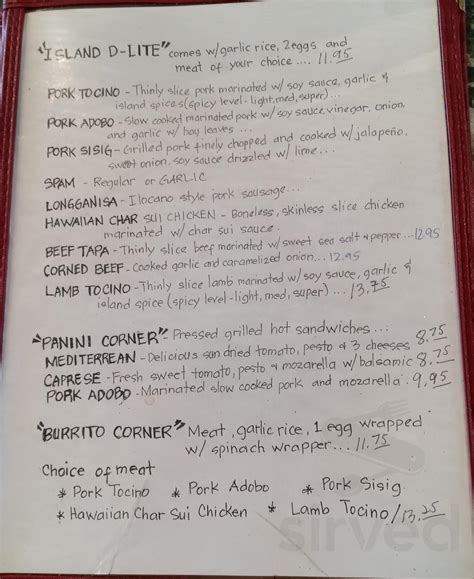 "ISLAND D-LITE" comes w/garlic rice, 2eggs and
meat of your choice .... 11.95
PORK TOCINO - Thinly slice pork marinated w/ soy sauce, garlic &
island spices (spicy level - light, med, super) ...
PORK ADOBO - Slow cooked marinated pork w/ soy sauce, vinegar, onion,
and garlic w/ bay leaves ...
PORK SISIG - Grilled pork finely chopped and cooked w/ jalapeño,
sweet onion, soy sauce drizzled w/ lime ...
SPAM - Regular or GARLIC
LONGGANISA - Ilocano style pork sausage...
HAWAIIAN CHAR SUI CHICKEN - Boneless, skinless slice chicken
marinated w/ char sui sauce.
BEEF TAPA - Thinly slice beef marinated w/ sweet sea salt & pepper ... 12.95
CORNED BEEF - Cooked garlic and caramelized onion ... 12.95
LAMB TOCINO - Thinly slice lamb marinated w/ soy sauce, garlic &
island spice (spicy level - light, med, super) .... 13.75
"PANINI CORNER" - Pressed grilled hot sandwiches ...
MEDITERREAN - Delicious sun dried tomato, pesto & 3 cheeses 8.75
CAPRESE - Fresh sweet tomato, pesto & mozarella w/ balsamic 8.75
PORK ADOBO - Marinated slow cooked pork and mozarella . 9.95
"BURRITO CORNER" Meat, garlic rice, 1 egg wrapped
w/ spinach wrapper ... 11.75
Choice of meat
* Pork Tocino * Pork Adobo * Pork Sisig
* Hawaiian Char Sui Chicken * Lamb Tocino / 13.25
sirved